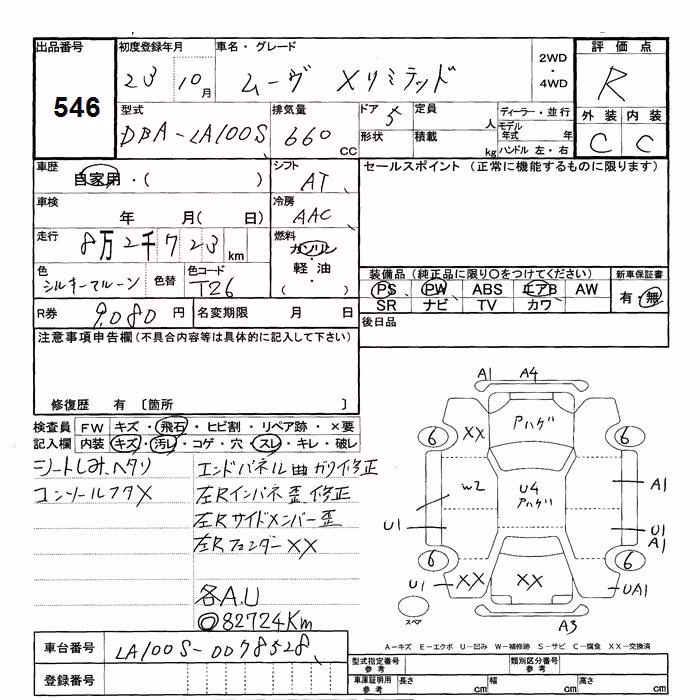 出品番号
546
初度登録年月
23 10月
車名・グレード
ムーヴ Xリミテッド
2WD
・
4WD
評価点
R
型式
DBA-LA100S
排気量
660 CC
ドア 5
形状
定員 人
積載 kg
ディーラー・並行
モデル年式 年
ハンドル 左・右
外装 内装
C C
車歴
自家用・( )
シフト
AT
セールスポイント (正常に機能するものに限ります)
車検
年 月( 日)
冷房
AAC
走行
8万2千723 km
燃料
ガソリン
・
軽油
( )
色
シルキーマルーン
色替
色コード
T26
装備品(純正品に限り○をつけてください)
PS PW ABS エアB AW
SR ナビ TV カワ
新車保証書
有・無
R券 9,080 円
名変期限 月 日
後日品
注意事項申告欄(不具合内容等は具体的に記入して下さい)
修復歴 有 〔箇所 〕
検査員記入欄
FW キズ・飛石・ヒビ割・リペア跡・×要
内装 キズ・汚レ・コゲ・穴・スレ・キレ・破レ
シートしみ、ヘタリ
コンソールフタX
エンドパネル曲ガリ修正
左Rインパネ歪 修正
左Rサイドメンバー歪
左Rフェンダー XX
各A.U
82724Km
A1 A4
アハゲ
XX
6 6
W2
U4
アハゲ
A1
U1
U1
A1
6 6
U1 XX
XX
UA1
スペア
A3
A-キズ E-エクボ U-凹み W-補修跡 S-サビ C-腐食 XX-交換済
車台番号 LA100S-0078528
登録番号
型式指定番号
参考
類別区分番号
参考
車庫証明用
参考
長さ cm
幅 cm
高さ cm